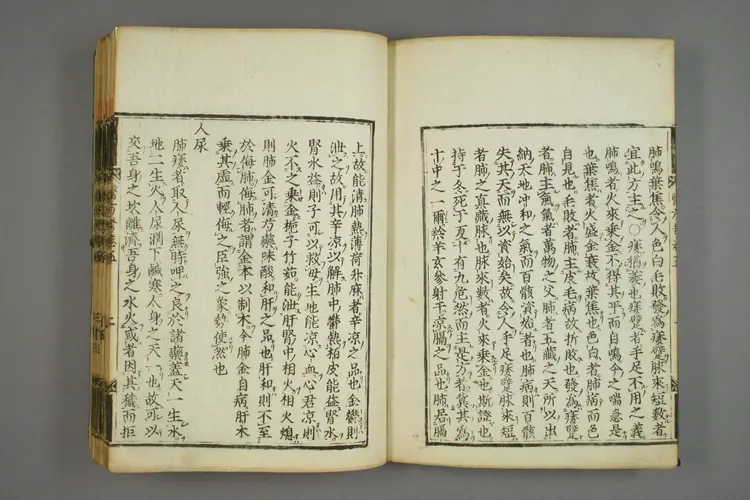 肺鳴葉焦令人色白毛敗發為痿躄脉來短數者
宜此方主之○痿猶萎也痿躄者手足不用之義
肺鳴者火來乘金不得其平而自鳴今之喘急是
也葉焦者火盛金衰故葉焦也色白者肺病而色
自見也毛敗者肺主皮毛病故折敗也發為痿躄
者肺主氣氣者萬物之父肺者五藏之天所以出
納太地冲和之氣而百骸資始者也肺病則百骸
失其天而無以資始矣故令人手足痿躄脉來短
者肺之真藏脉也脉來數者火來乘金也斯證也
持于冬死于夏十有九危然而主是方者冀其為
十中之一爾羚羊玄參射干凉膈之品也肺居膈
上故能清肺熱薄荷升麻者辛凉之品也金鬱則
泄之故用其辛凉以解肺中鬱熱栢皮能益腎水
腎水益則子可以救母生地能凉心血心君凉則
火不之乘金梔子竹茹能泄肝腎中相火相火熄
則肺金可清方藥味酸和肝之品也肝和則不至
於侮肺侮肺者謂金本以制木今肺金自病肝木
乗其虛而輕侮之臣強之象勢使然也
人尿
肺痿者取人尿無時呷之良於諸藥蓋天一生水
地二生火人尿潤下鹹寒人身之天一也故可以
交吾身之坎離濟吾身之水火或者因其穢而拒